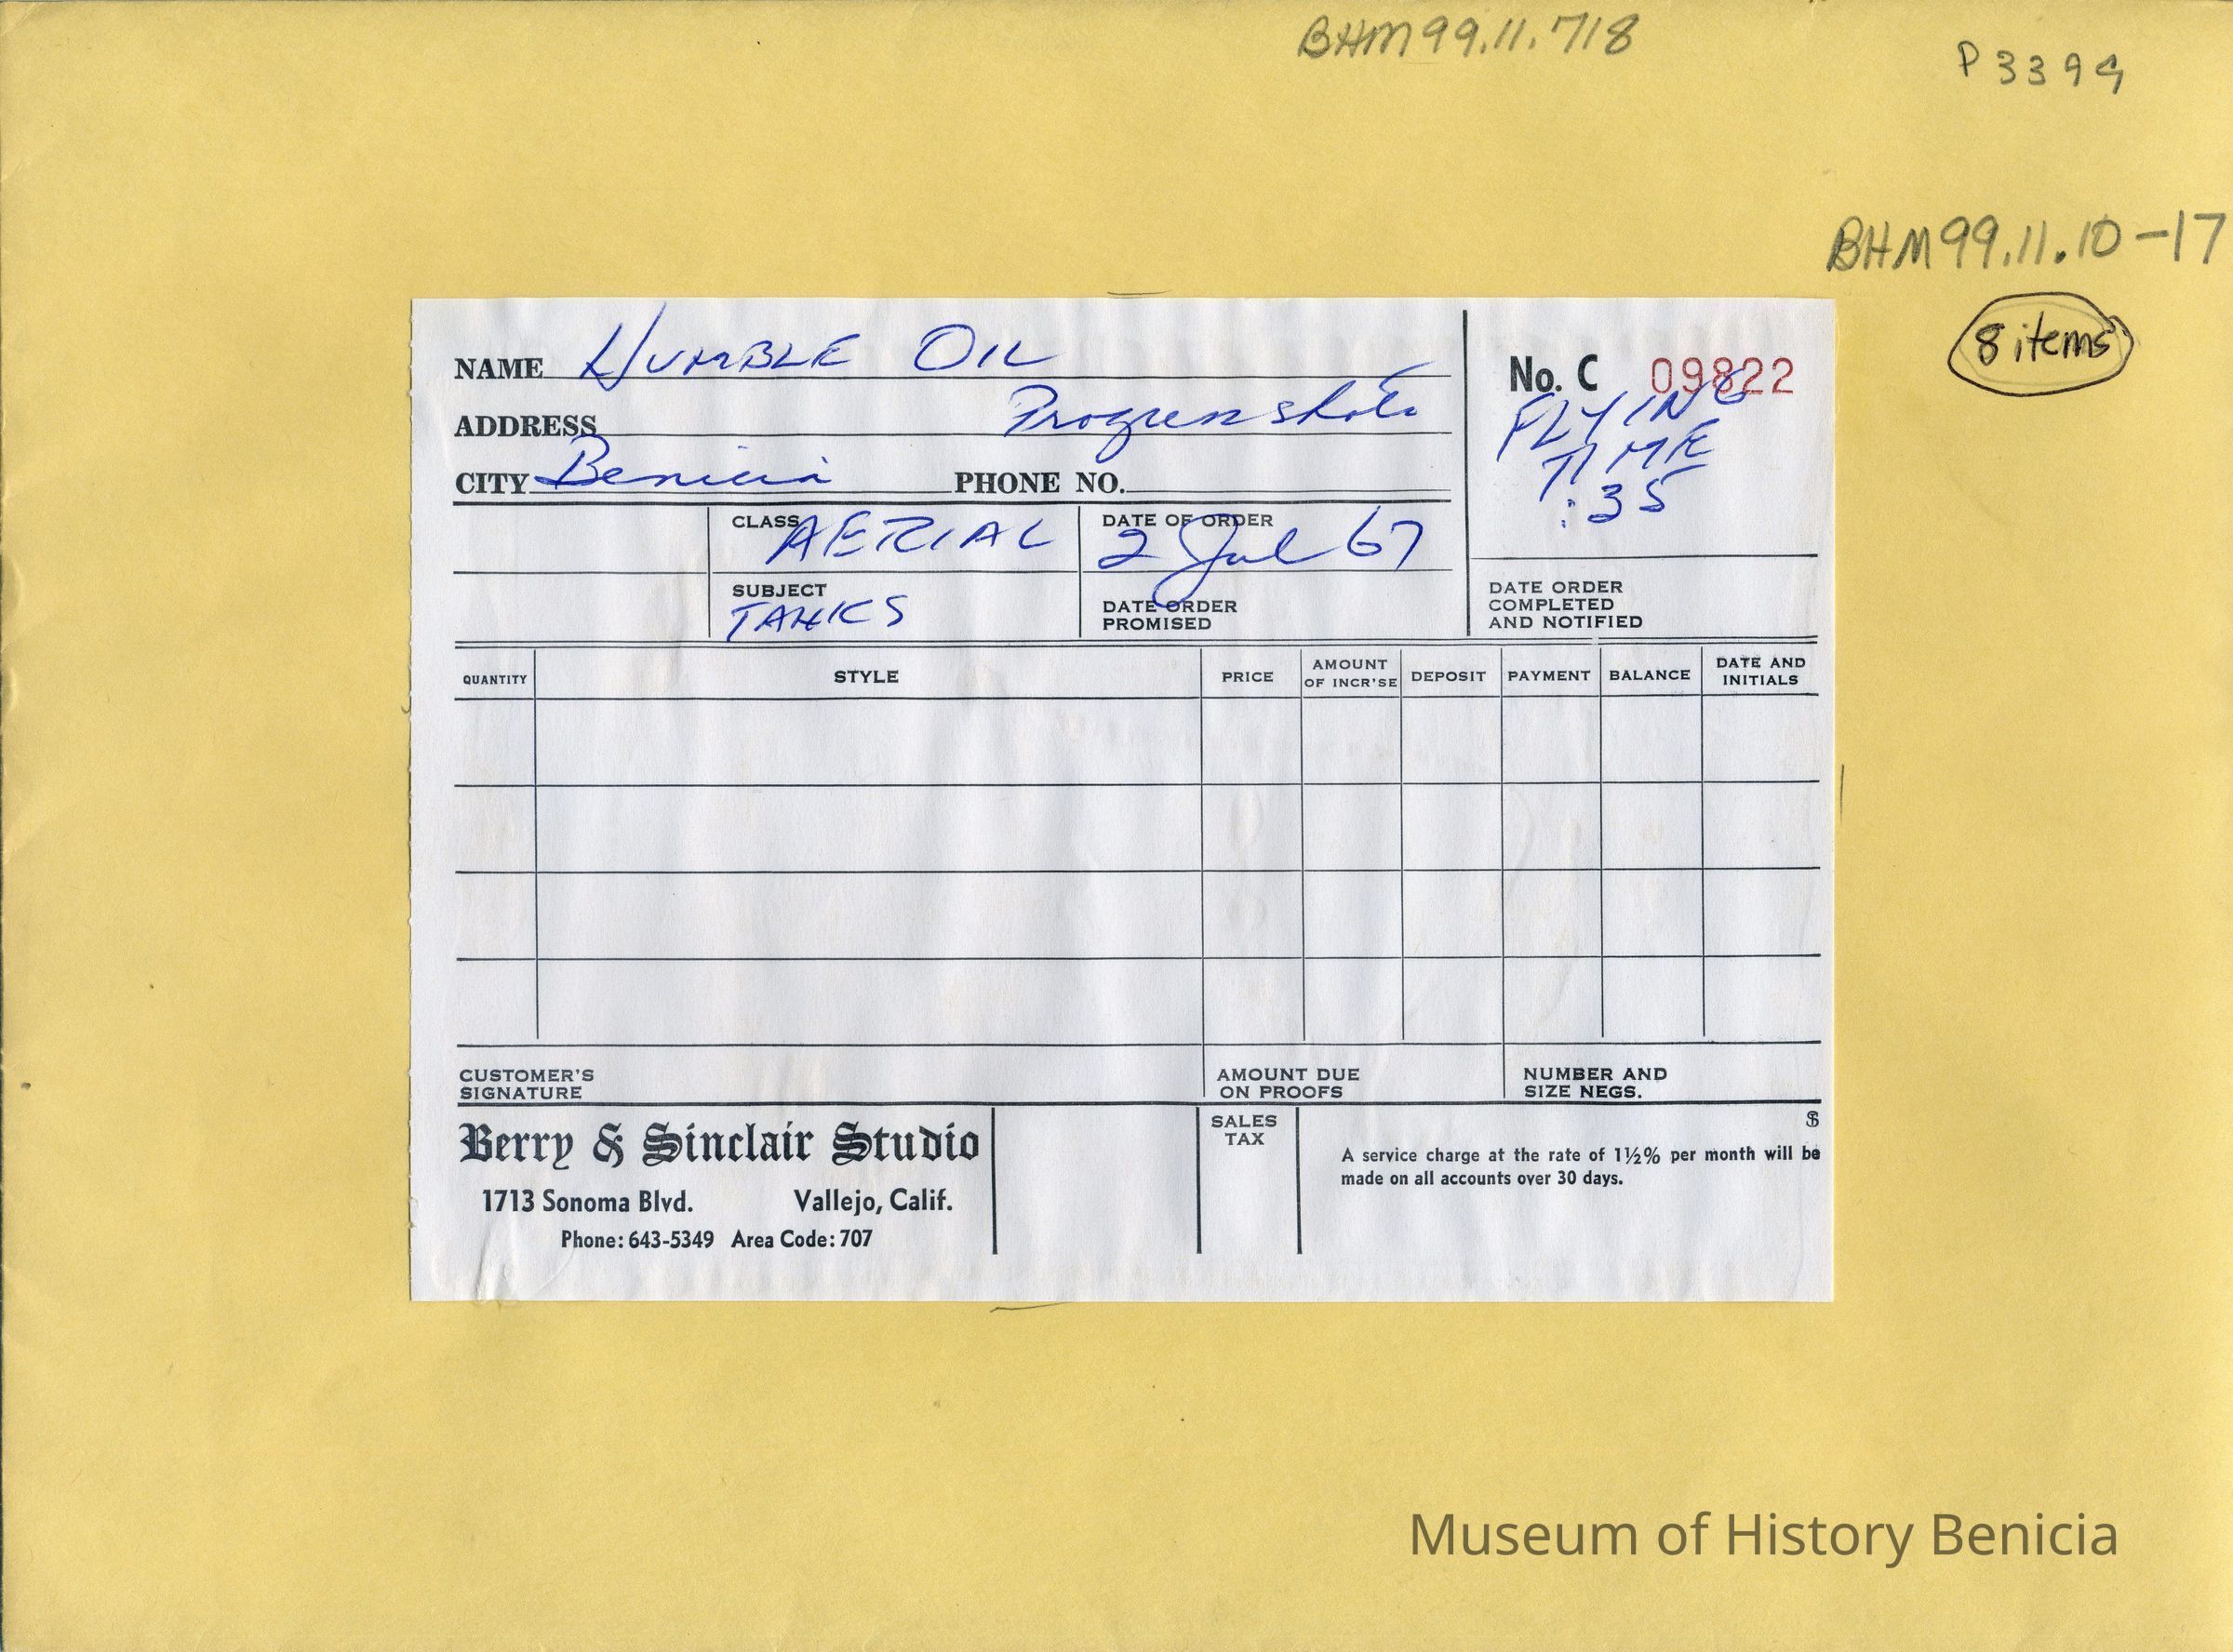 BHM99.11.718
P3399
BHM99.11.10-17
8 items
NAME HUMBLE OIL
No. C 09822
ADDRESS Progress shots
FLYING
TIME
:35
CITY Benicia PHONE NO.
CLASS AERIAL DATE OF ORDER 2 Jul 67
SUBJECT TANKS DATE ORDER PROMISED
DATE ORDER
COMPLETED
AND NOTIFIED
QUANTITY STYLE PRICE AMOUNT OF INCR'SE DEPOSIT PAYMENT BALANCE DATE AND INITIALS
CUSTOMER'S
SIGNATURE
AMOUNT DUE
ON PROOFS
NUMBER AND
SIZE NEGS.
Berry & Sinclair Studio
1713 Sonoma Blvd. Vallejo, Calif.
Phone: 643-5349 Area Code: 707
SALES
TAX
$
A service charge at the rate of 1½% per month will be
made on all accounts over 30 days.
Museum of History Benicia